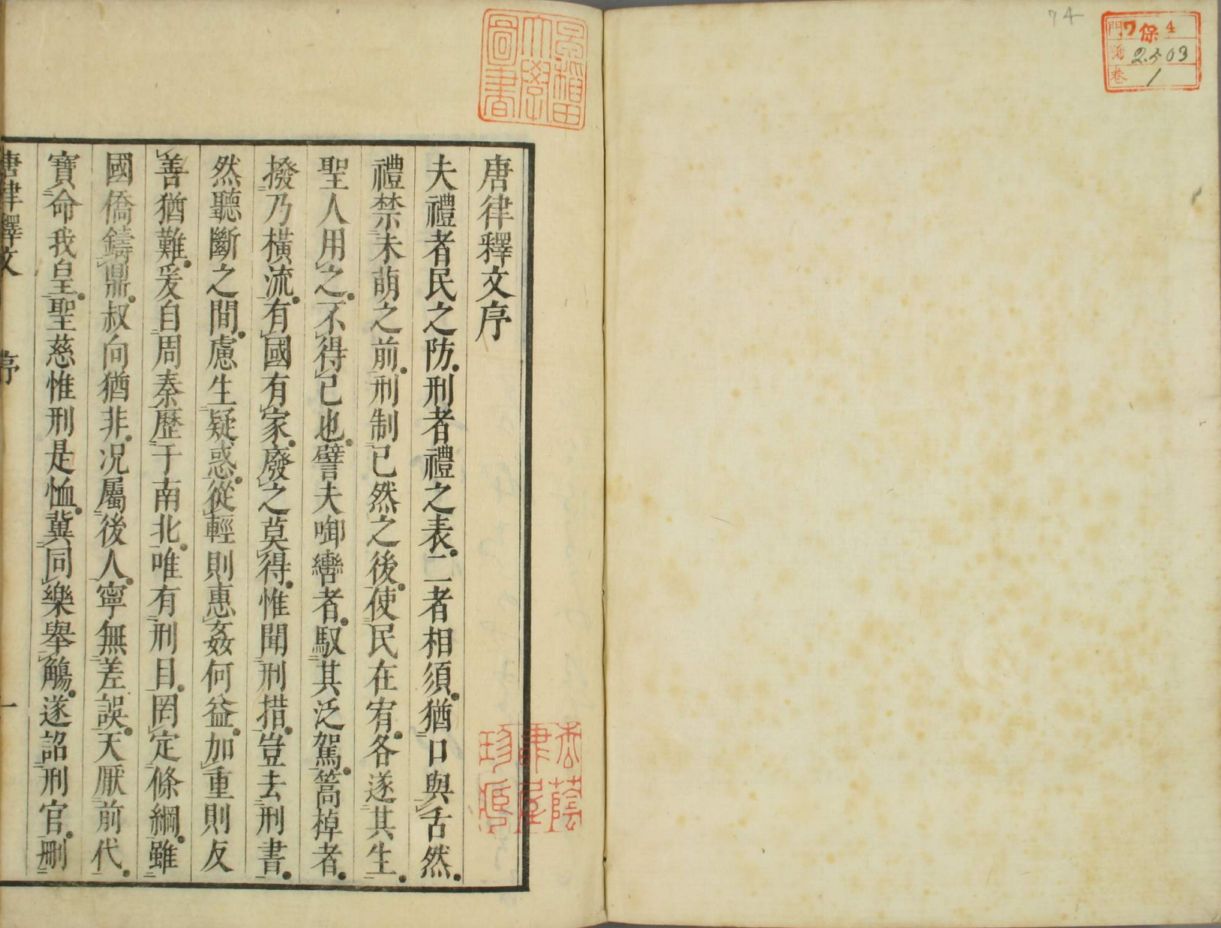 74
門 ワ 保 4
號 2503
卷 1
早稲田
大學
圖書
唐律釋文序
夫禮者民之防。刑者禮之表。二者相須。猶口與舌然。
禮禁未萌之前。刑制已然之後。使民在宥。各遂其生。
聖人用之。不得已也。譬夫啣轡者。馭其泛駕。篙棹者。
撥乃橫流。有國有家。廢之莫得。惟聞刑措。豈去刑書。
然聽斷之間。慮生疑惑。從輕則惠姦何益。加重則反
善猶難。爰自周秦歷于南北。唯有刑目。罔定條綱。雖
國僑鑄鼎。叔向猶非。况屬後人。寧無差誤。天厭前代。
寶命我皇。聖慈惟刑是恤。冀同樂舉觴。遂詔刑官。刪
唐律釋文 序 一